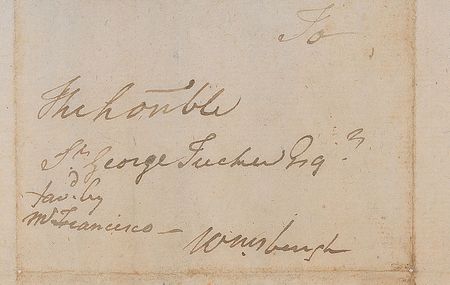 To
The honble
St George Tucker Esqr
favd by
Mr Francisco —
Wmsburgh